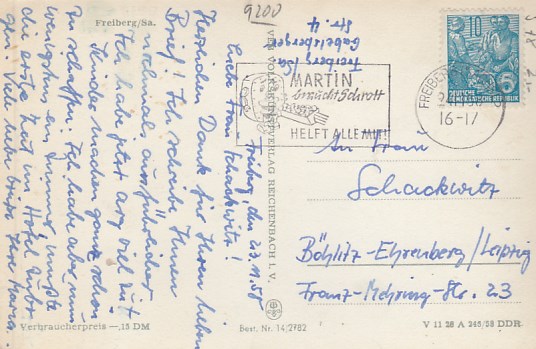 Freiberg/Sa.
9200
Freiberg, den 23.11.58
Liebe Frau Schackwitz!
Herzlichen Dank für Ihren lieben
Brief! Ich schreibe Ihnen
nochmal ausführlicher.
Ich habe jetzt arg viel zu t
Kinder machen ganz schön
zu schaffen. Ich habe aber nun
wenigstens ein Zimmer, mußte
die erste Zeit im Hotel zubr
gen. Viele liebe Grüße Ihre
Verbraucherpreis –,15 DM
Freiberg/Sa
Gabelsberger
Str. 4
VEB VOLKSKUNSTVERLAG REICHENBACH I. V.
Best. Nr. 14/2182
MARTIN
braucht Schrott
HELFT ALLE MIT!
FREIBERG
16-17
10
5
DEUTSCHE
DEMOKRATISCHE REPUBLIK
An Frau
Schackwitz
Böhlitz-Ehrenberg/Leipzig
Franz-Mehring-Str. 23
V 11 28 A 245/58 DDR